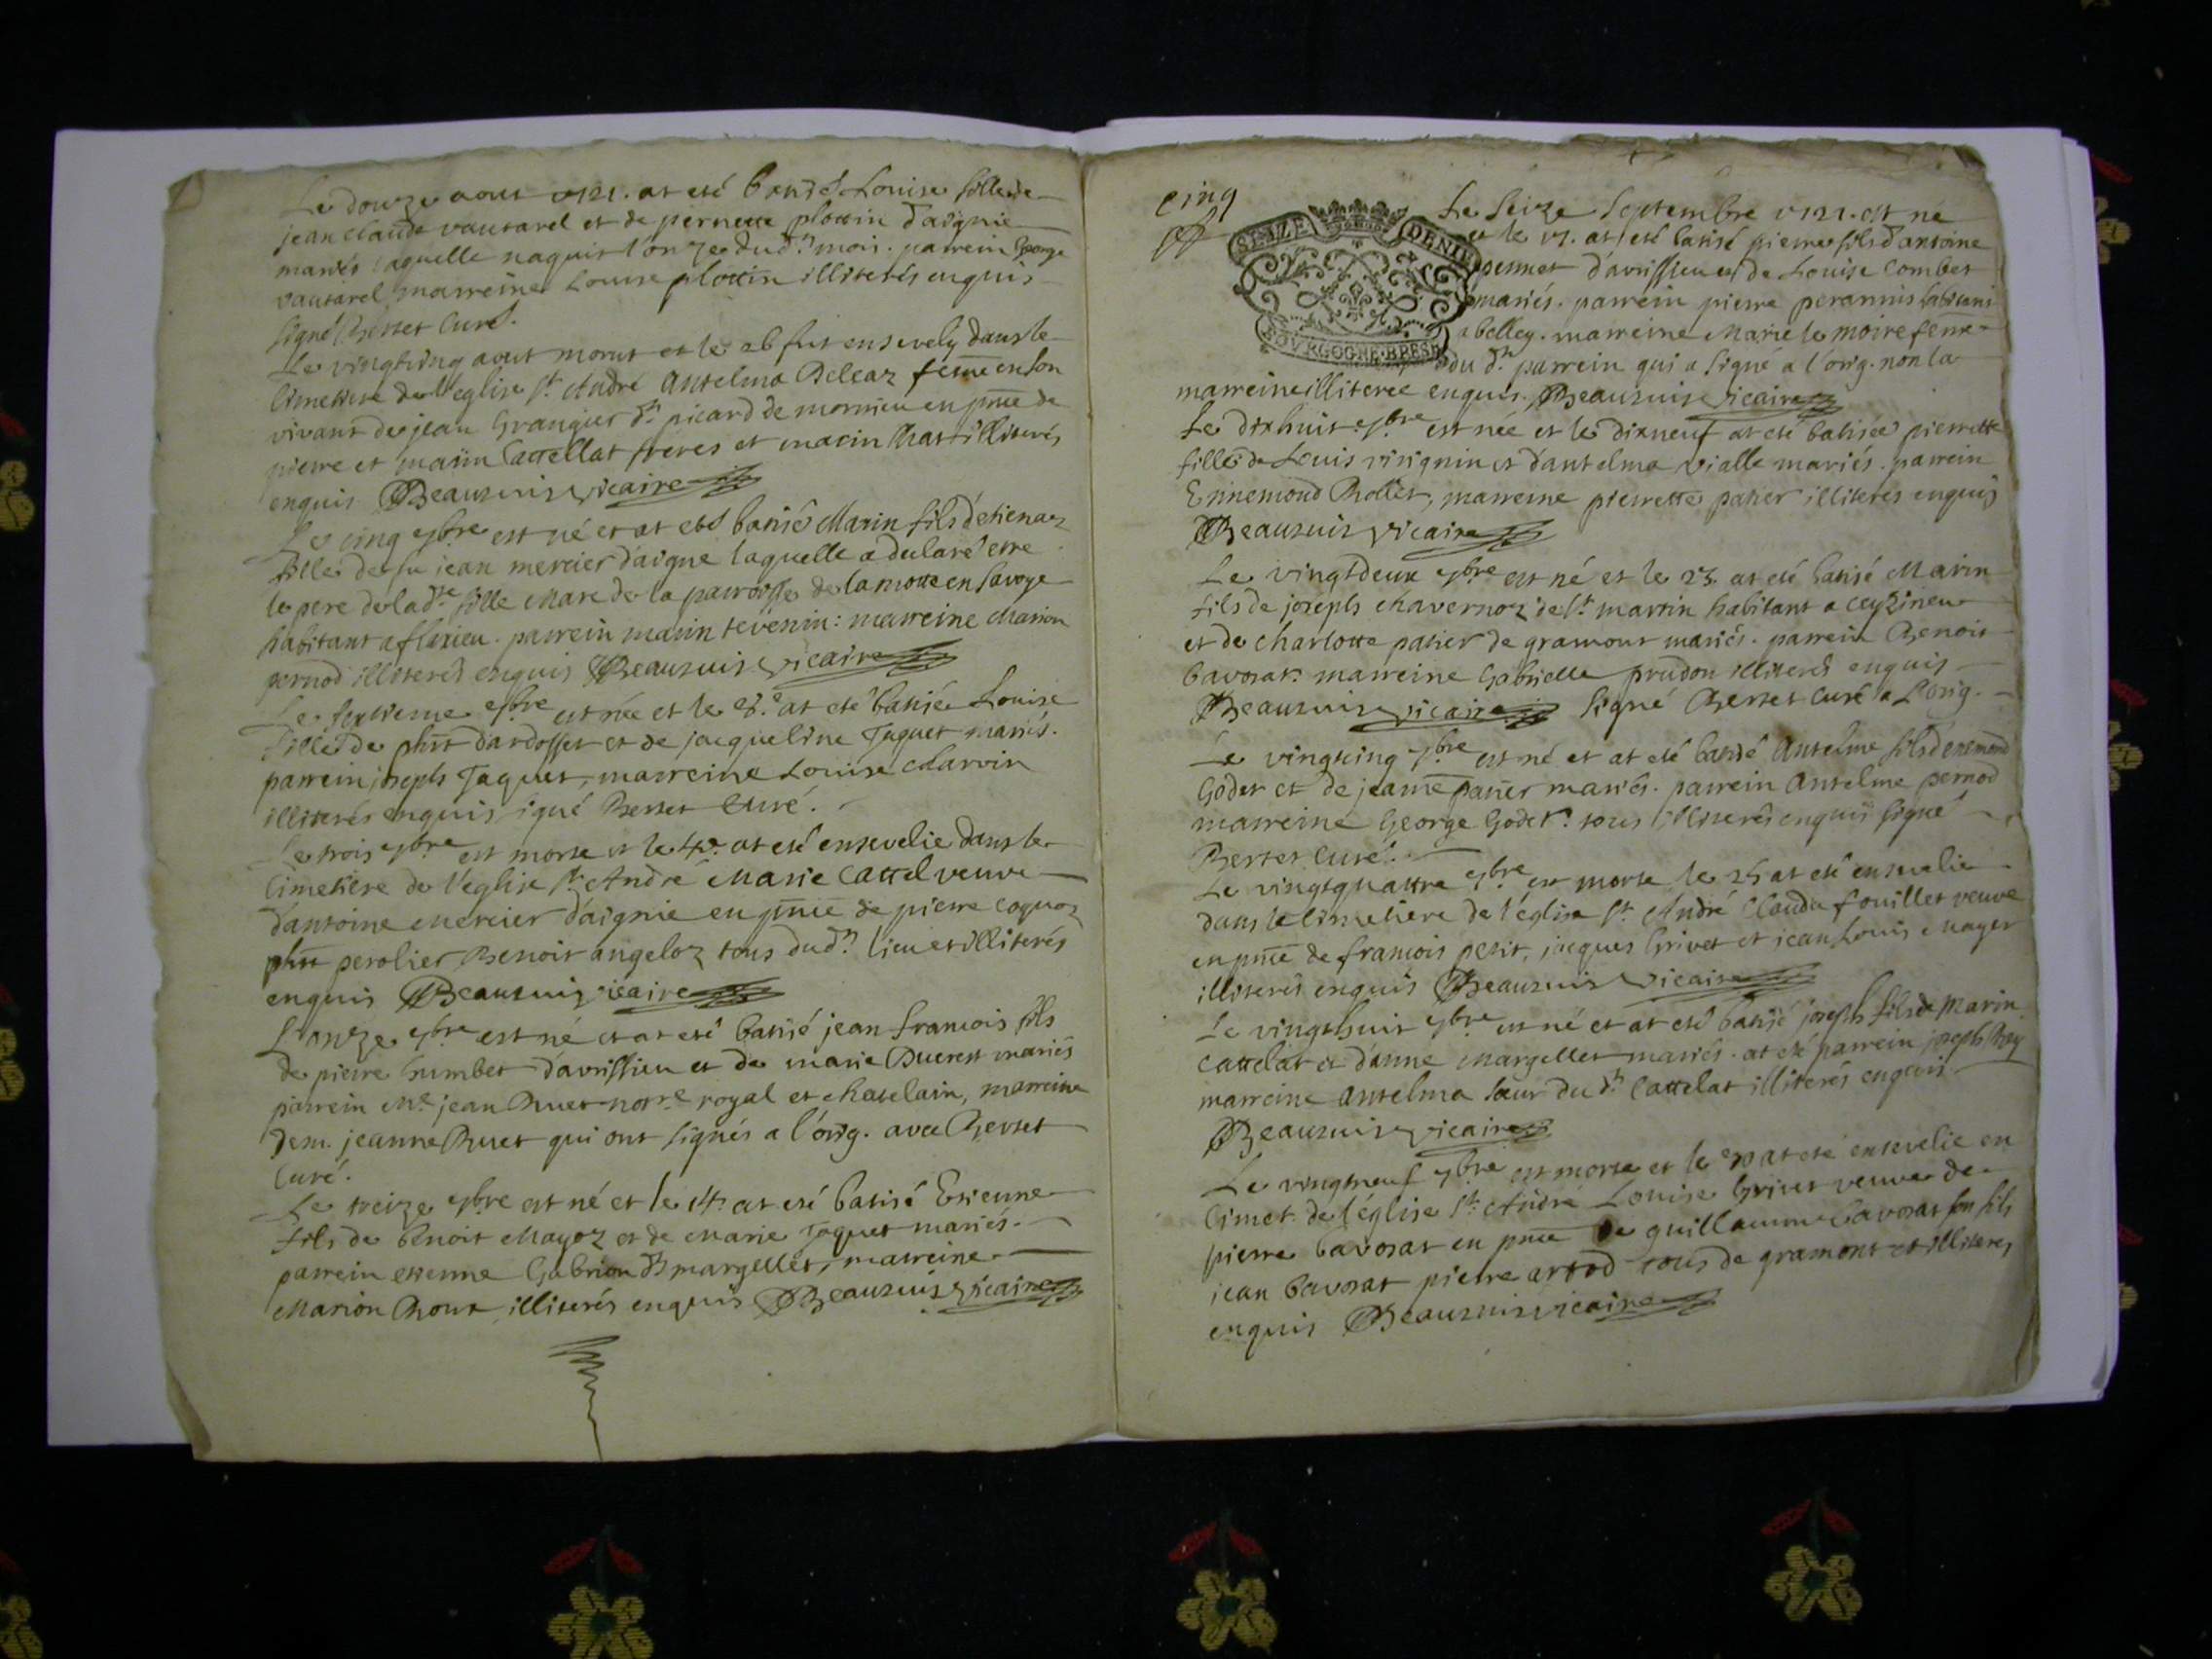 Le douze aout 1721. at eté batisé Louise fille de
jean claude vautarel et de pernette plottin d'aignie
mariés laquelle naquit l'onze dud.t mois. parrein George
vautarel marreine Louise plottin illiterés enquis
signé Berset Curé.
Le vingtcinq aout morut et le 26 fut ensevely dans le
Cimetiere de l'eglise St. André Antelma Beleaz feme en son
vivant de jean Grangier dt picard de mornieu en pnce de
pierre et marin Cattellat freres et marin Chat illiterés
enquis Beausuis vicaire
Le cinq 7bre est né et at eté batisé Marin fils d'etienaz
fille de fu jean mercier d'aigne laquelle a declaré etre
le pere de lad.te fille Marc de la parroisse de la motte en Savoye
habitant a flaxieu. parrein marin tevenin: marreine Marion
pernod illiterés enquis Beausuis vicaire
Le septieme 7bre est née et le 8.e at eté batisée Louise
fille de phit dardosset et de jacqueline Jaquet mariés.
parrein joseph Jaquet, marreine Louise Charvin
illiterés enquis signé Berset Curé.
Le trois 7bre est morte et le 4e. at eté ensevelie dans le
Cimetiere de l'eglise St. André Marie Cattel veuve
d'antoine Mercier d'aignie en pnce de pierre coquoz
phit perolier Benoit angeloz tous dud.t lieu et illiterés
enquis Beausuis vicaire
L'onze 7bre est né et at eté batisé jean francois fils
de pierre humbet d'avrissieu et de marie Buerest mariés
parrein Me. jean Buet notre. royal et chatelain, marreine
Dem. jeanne Buet qui ont signés a l'orig. avec Berset
Curé.
Le treize 7bre est né et le 14. at eté batisé Etienne
fils de benoit Mayoz et de Marie Jaquet mariés.
parrein etienne Gabrion dt margellet, marreine
Marion Rout illiterés enquis Beausuis vicaire
cinq
SEIZE DENIE
BOVRGOGNE BRESSE
Le Seize Septembre 1721. est né
et le 17. at eté batisé pierre fils d'antoine
pennet d'avrissieu et de Louise Combet
mariés. parrein pierre peramis habitant
a belley. marreine Marie le moire feme
du dt. parrein qui a signé a l'orig. non la
marreine illiteree enquis. Beausuis vicaire
Le dixhuit 7bre est née et le dixneuf at eté batisée pierrette
fille de Louis virignin et d'antelma vialle mariés. parrein
Ennemond Rollet, marreine pierrette patier illiterés enquis
Beausuis vicaire
Le vingtdeux 7bre est né et le 23. at eté batisé Marin
fils de joseph chavernoz de St. martin habitant a ceyzirieu
et de Charlotte patier de gramont mariés. parrein Benoit
bavosat. marreine Gabrielle prudon illiterés enquis
Beausuis vicaire signé Berset curé a l'orig.
Le vingtcinq 7bre est né et at eté batisé Antelme fils d'enemond
Godet et de jeanne patier mariés. parrein Antelme pernod
marreine George Godet. tous illiterés enquis signé
Berset Curé.
Le vingtquattre 7bre est morte le 25 at eté ensevelie
dans le Cimetiere de l'église St. André Clauda fouillet veuve
en pnce de francois petit, jacques Grivet et jean Louis Mayet
illiterés enquis Beausuis vicaire
Le vingthuit 7bre est né et at eté batisé joseph fils de Marin
Cattelat et d'anne Margellet mariés. at eté parrein joseph Rey
marreine Antelma soeur du dt. Cattelat illiterés enquis
Beausuis vicaire
Le vingtneuf 7bre est morte et le 30 at eté ensevelie en
Cimet. de l'église St. André Louise Grivet veuve de
pierre bavosat en pnce de guillaume bavosat son fils
jean bavosat pierre artod tous de gramont et illiterés
enquis Beausuis vicaire